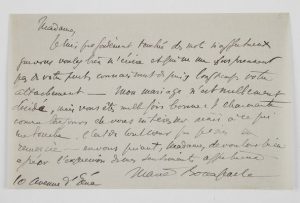 Madame,
Je suis profondément touchée du mot si affectueux
que vous voulez bien m'écrire et qui ne me surprend
pas de votre part, connaissant depuis longtemps votre
attachement — mon mariage n'est nullement
décidé, mais vous êtes mille fois bonne & charmante
de vous intéresser ainsi à ce qui
me touche. C'est de tout coeur que je vous en
remercie — en vous priant, Madame, de vouloir bien
agréer l'expression de mes sentiments affectueux
Marie Bonaparte
10 avenue d'Iéna